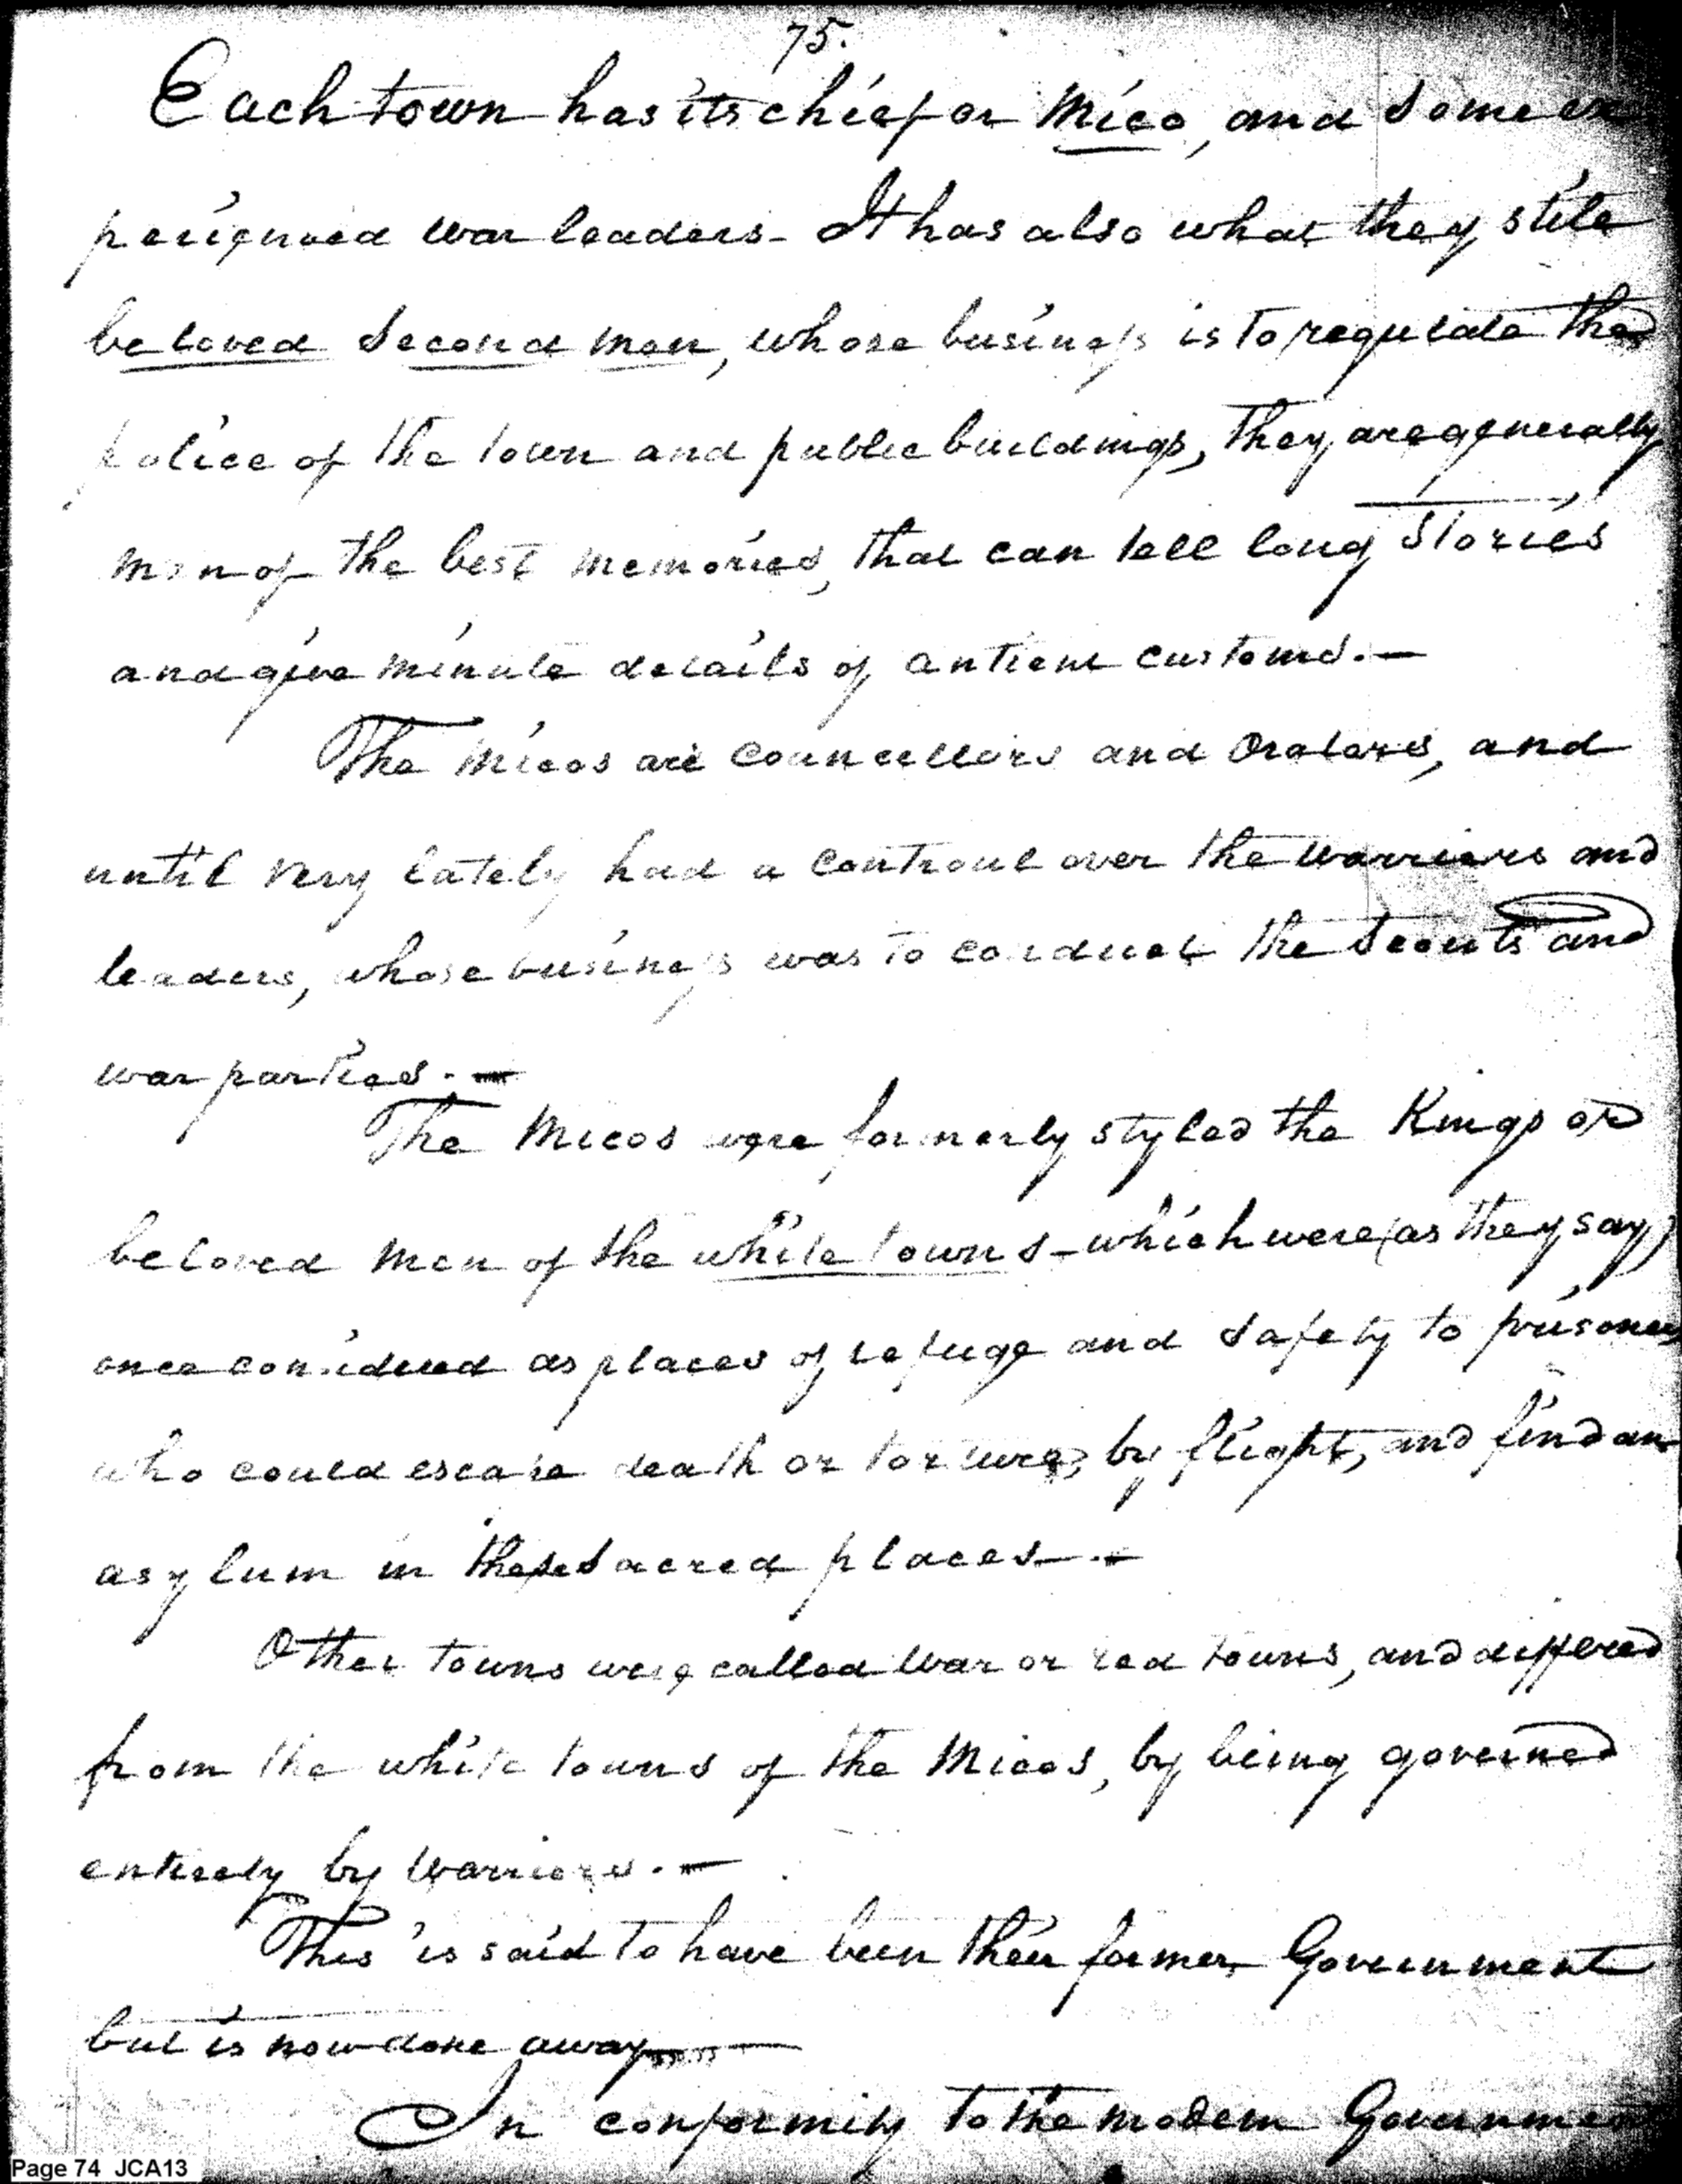 75.
Each town has its chief or Mico, and some ex
perienced war leaders - It has also what they stile
beloved second men, whose business is to regulate the
police of the town and public buildings, they are generally
men of the best memories, that can tell long stories
and give minute details of antient customs. —
The Micos are councellors and orators, and
until very lately had a controul over the warriors and
leaders, whose business was to conduct the scouts and
war parties. —
The Micos were formerly styled the Kings or
beloved men of the white towns - which were (as they say)
once considered as places of refuge and safety to prisoners
who could escape death or torture, by flight, and find an
asylum in these sacred places —. —
Other towns were called war or red towns, and differed
from the white towns of the Micos, by being governed
entirely by warriors. —
This is said to have been their former Government
but is now done away —
In conformity to the modern Government
Page 74 JCA13